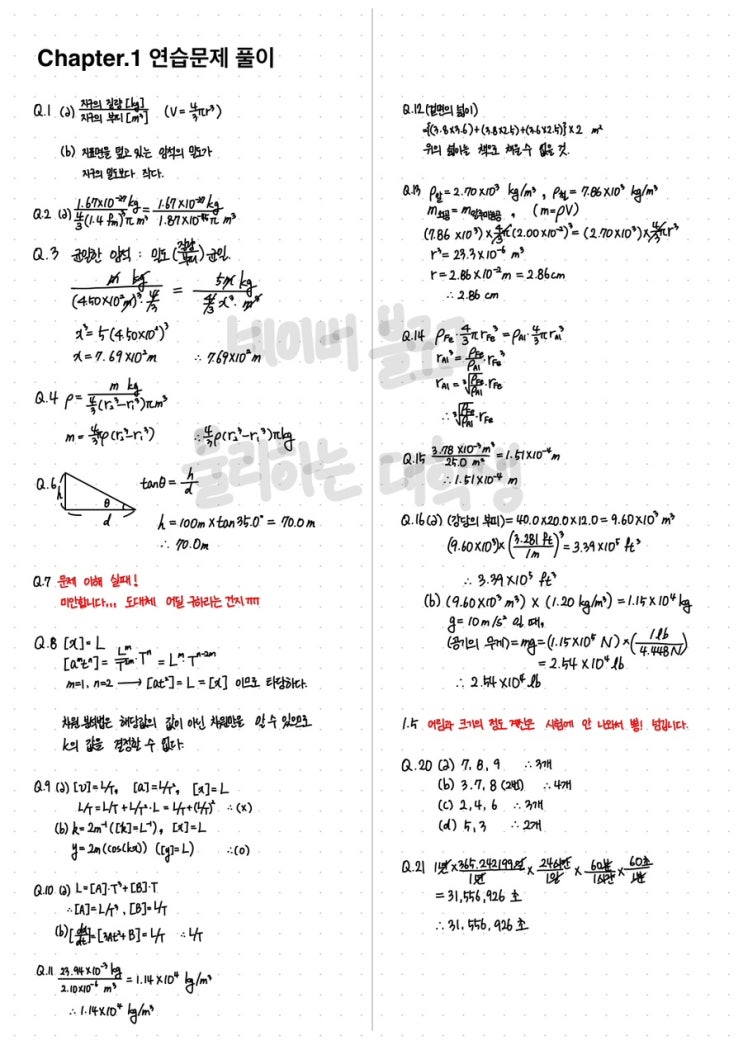 Chapter.1 연습문제 풀이
Q.1 (a) 지구의 질량 [kg] / 지구의 부피 [m³] (V = 4/3πr³)
(b) 지표면을 덮고 있는 암석의 밀도가
지구의 밀도보다 작다.
Q.2 (a) 1.67×10⁻²⁷ kg / 4/3(1.4 fm)³π m³ = 1.67×10⁻²⁷ kg / 1.87×10⁻⁴⁵ π m³
Q.3 균일한 암석 : 밀도(질량/부피) 균일.
m kg / (4.50×10²m)³·4/3 = 5m kg / 4/3 x³·m³
x³ = 5(4.50×10²)³
x = 7.69×10²m ∴ 7.69×10²m
Q.4 ρ = m kg / 4/3(r₂³-r₁³)πm³
m = 4/3πρ(r₂³-r₁³) ∴ 4/3ρ(r₂³-r₁³)πkg
Q.6 h θ d tanθ = h/d
h = 100m × tan35.0° = 70.0m
∴ 70.0m
Q.7 문제 이해 실패!
미안합니다... 도대체 어딜 구하라는 건지ㅠㅠ
Q.8 [x] = L
[aᵐtⁿ] = Lᵐ/T²ᵐ·Tⁿ = LᵐTⁿ⁻²ᵐ
m=1, n=2 → [at²] = L = [x] 이므로 타당하다.
차원 분석법은 해당값의 값이 아닌 차원만을 알 수 있으므로
k의 값을 결정할 수 없다.
Q.9 (a) [v] = L/T, [a] = L/T², [x] = L
L/T = L/T + L/T²·L = L/T + (L/T)² ∴ (x)
(b) k = 2m⁻¹ ([k] = L⁻¹), [x] = L
y = 2m(cos(kx)) ([y] = L) ∴ (o)
Q.10 (a) L = [A]·T³ + [B]·T
∴ [A] = L/T³, [B] = L/T
(b) [dx/dt] = [3At² + B] = L/T ∴ L/T
Q.11 23.94×10⁻³ kg / 2.10×10⁻⁶ m³ = 1.14×10⁴ kg/m³
∴ 1.14×10⁴ kg/m³
Q.12 (겉면의 넓이)
={(3.8×3.6)+(3.8×2.5)+(3.6×2.5)}×2 m²
위의 넓이는 책으로 채울 수 없을 것.
Q.13 ρ알 = 2.70×10³ kg/m³, ρ철 = 7.86×10³ kg/m³
m쇠공 = m알루미늄공, (m=ρV)
(7.86×10³)×4/3π(2.00×10⁻²)³ = (2.70×10³)×4/3πr³
r³ = 23.3×10⁻⁶ m³
r = 2.86×10⁻²m = 2.86cm
∴ 2.86 cm
Q.14 ρFe·4/3πrFe³ = ρAl·4/3πrAl³
rAl³ = ρFe/ρAl·rFe³
rAl = ³√(ρFe/ρAl)·rFe
∴ ³√(ρFe/ρAl)·rFe
Q.15 3.78×10⁻³m³ / 25.0 m² = 1.51×10⁻⁴m
∴ 1.51×10⁻⁴ m
Q.16 (a) (강당의 부피) = 40.0×20.0×12.0 = 9.60×10³ m³
(9.60×10³)×(3.281 ft/1m)³ = 3.39×10⁵ ft³
∴ 3.39×10⁵ ft³
(b) (9.60×10³ m³) × (1.20 kg/m³) = 1.15×10⁴ kg
g = 10m/s² 일 때,
(공기의 무게) = mg = (1.15×10⁵ N)×(1 lb/4.448N)
= 2.54×10⁴ lb
∴ 2.54×10⁴ lb
1.5 어림과 크기의 정도 계산은 시험에 안 나와서 뿅! 넘깁니다.
Q.20 (a) 7, 8, 9 ∴ 3개
(b) 3, 7, 8 (2번) ∴ 4개
(c) 2, 4, 6 ∴ 3개
(d) 5, 3 ∴ 2개
Q.21 1년×365.242199일/1년 × 24시간/1일 × 60분/1시간 × 60초/1분
= 31,556,926 초
∴ 31,556,926 초
네이버 블로그
물리하는 대학생